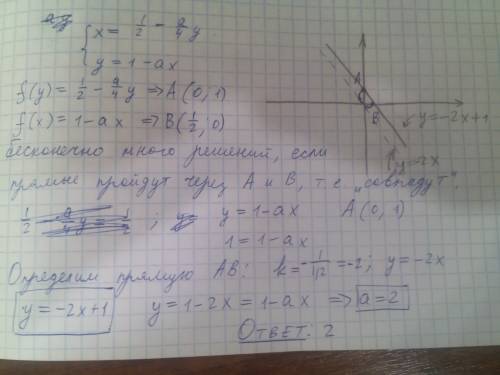 x = 1/2 - a/4 y
y = 1 - ax
f(y) = 1/2 - a/4 y => A(0,1)
f(x) = 1 - ax => B(1/2; 0)
бесконечно много решений, если
прямые пройдут через A и B, т.е. „совпадут"
y = 1 - ax A(0,1)
1 = 1 - ax
Определим прямую AB: k = - 1/1/2 = -2; y = -2x
y = -2x+1 y = 1-2x = 1-ax => a = 2
Ответ: 2
A
B
y = -2x+1
y = 2x